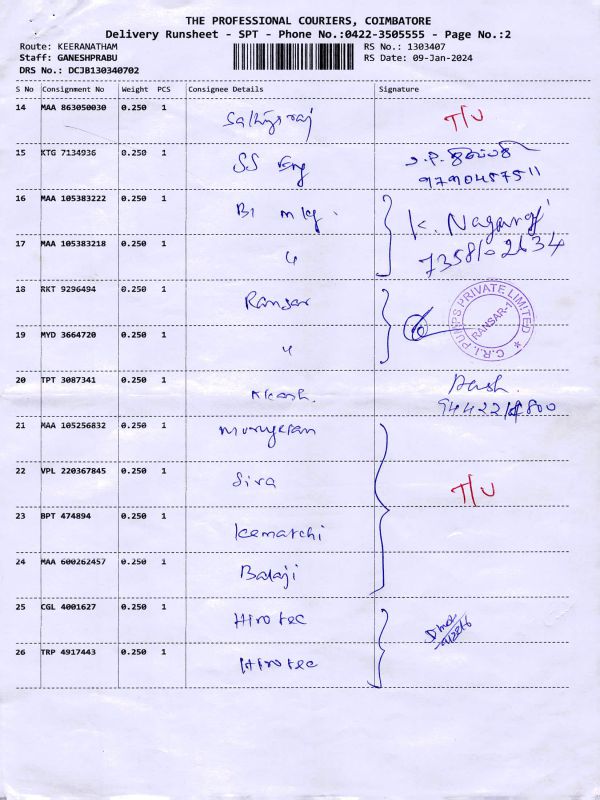 THE PROFESSIONAL COURIERS, COIMBATORE
Delivery Runsheet - SPT - Phone No.:0422-3505555 - Page No.:2
Route: KEERANATHAM RS No.: 1303407
Staff: GANESHPRABU RS Date: 09-Jan-2024
DRS No.: DCJB130340702
S No Consignment No Weight PCS Consignee Details Signature
14 MAA 863050030 0.250 1 T/U
15 KTG 7134936 0.250 1 SS Eng
9790457511
16 MAA 105383222 0.250 1 K. Nagaraj
17 MAA 105383218 0.250 1
18 RKT 9296494 0.250 1 Ransar
C.R.I. PUMPS PRIVATE LIMITED
RANSAR-1
19 MYD 3664720 0.250 1
20 TPT 3087341 0.250 1 Akash.
21 MAA 105256832 0.250 1 Murugesan
22 VPL 220367845 0.250 1 Siva T/U
23 BPT 474894 0.250 1 Kematchi
24 MAA 600262457 0.250 1 Balaji
25 CGL 4001627 0.250 1 Hirotec
26 TRP 4917443 0.250 1 Hirotec